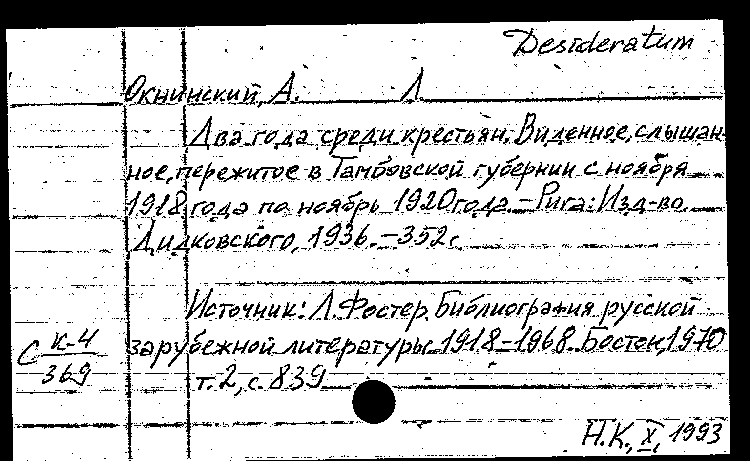 Desideratum
Окнинский, А. Л.
Два года среди крестьян. Виденное, слышан-
ное, пережитое в Тамбовской губернии с ноября
1918 года по ноябрь 1920 года. – Рига: Изд-во
Дидковского, 1936. – 352 с.
Источник: Л. Фостер. Библиография русской
зарубежной литературы. 1918–1968. Бостон, 1970
т. 2, с. 839
С К-4
369
Н.К., X, 1993